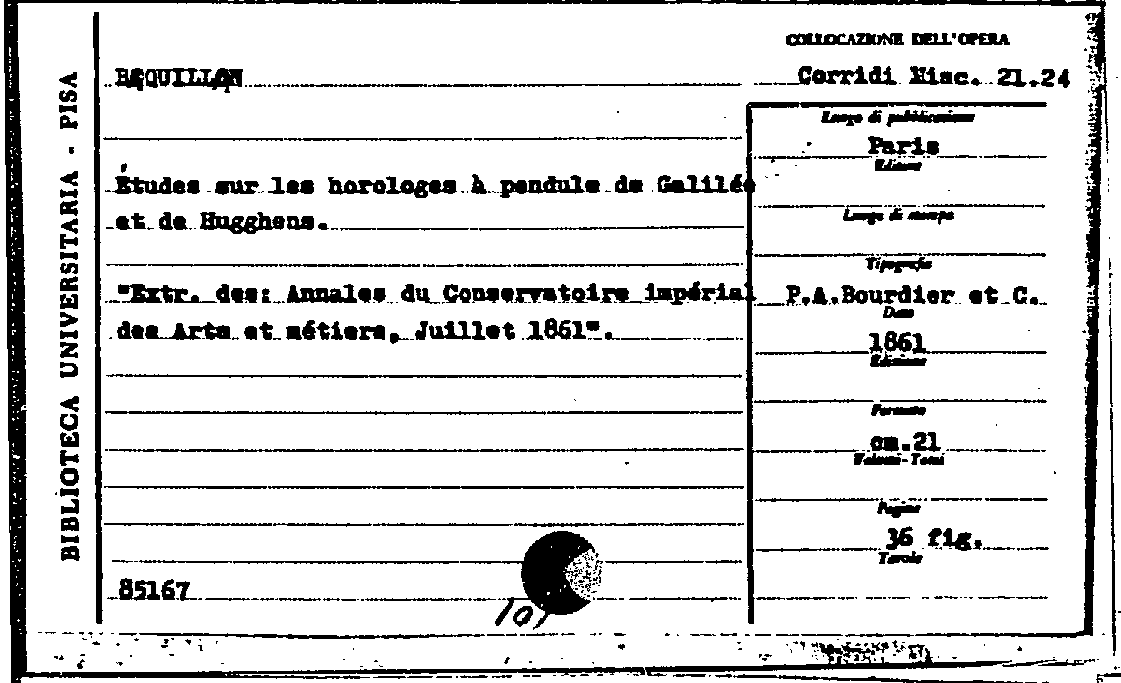 BIBLIOTECA UNIVERSITARIA - PISA
COLLOCAZIONE DELL'OPERA
Corridi Misc. 21.24
Études sur les horologes à pendule de Galilée
et de Hugghens.
"Extr. des: Annales du Conservatoire impérial
des Arts et métiers, Juillet 1861".
85167
Luogo di pubblicazione
Paris
Editore
Luogo di stampa
Tipografia
P.A.Bourdier et C.
Data
1861
Edizione
Formato
cm.21
Volumi - Tomi
Pagine
36 fig.
Tavole